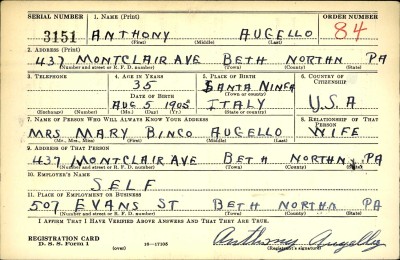 SERIAL NUMBER 1. NAME (Print) ORDER NUMBER
3151 ANTHONY AUGELLO 84
(First) (Middle) (Last)
2. ADDRESS (Print)
437 MONTCLAIR AVE BETH NORTHN PA
(Number and street or R. F. D. number) (Town) (County) (State)
3. TELEPHONE 4. AGE IN YEARS 5. PLACE OF BIRTH 6. COUNTRY OF CITIZENSHIP
35 SANTA NINFA
DATE OF BIRTH (Town or county)
AUG 5 1905 ITALY U.S.A
(Exchange) (Number) (Mo.) (Day) (Yr.) (State or country)
7. NAME OF PERSON WHO WILL ALWAYS KNOW YOUR ADDRESS 8. RELATIONSHIP OF THAT PERSON
MRS MARY BINCO AUGELLO WIFE
(Mr., Mrs., Miss) (First) (Middle) (Last)
9. ADDRESS OF THAT PERSON
437 MONTCLAIR AVE BETH NORTHN PA
(Number and street or R. F. D. number) (Town) (County) (State)
10. EMPLOYER'S NAME
SELF
11. PLACE OF EMPLOYMENT OR BUSINESS
507 EVANS ST BETH NORTHN PA
(Number and street or R. F. D. number) (Town) (County) (State)
I AFFIRM THAT I HAVE VERIFIED ABOVE ANSWERS AND THAT THEY ARE TRUE.
REGISTRATION CARD
D. S. S. Form 1 (over) 16—17105 Anthony Augello
(Registrant's signature)